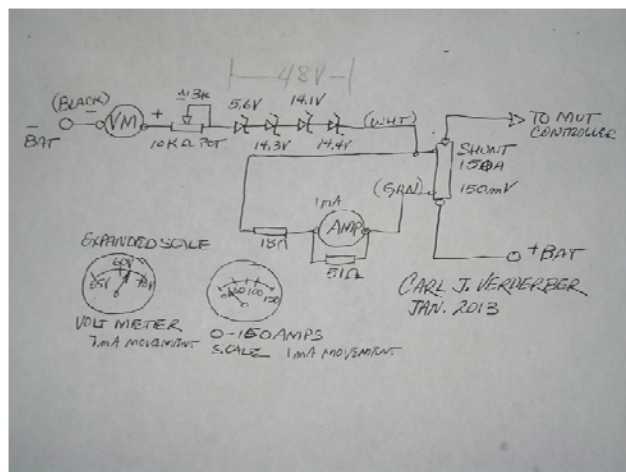 48V
(BLACK)
-
BAT
VM
+
3K
10KΩ POT
5.6V
14.3V
14.1V
14.4V
(WHT)
TO MOT
CONTROLLER
SHUNT
150A
150mV
(GRN)
1mA
AMP
18Ω
51Ω
+BAT
EXPANDED SCALE
60V
70V
VOLT METER
1mA MOVEMENT
50 100 150
0-150AMPS
SCALE 1mA MOVEMENT
CARL J. VERDERBER
JAN. 2013